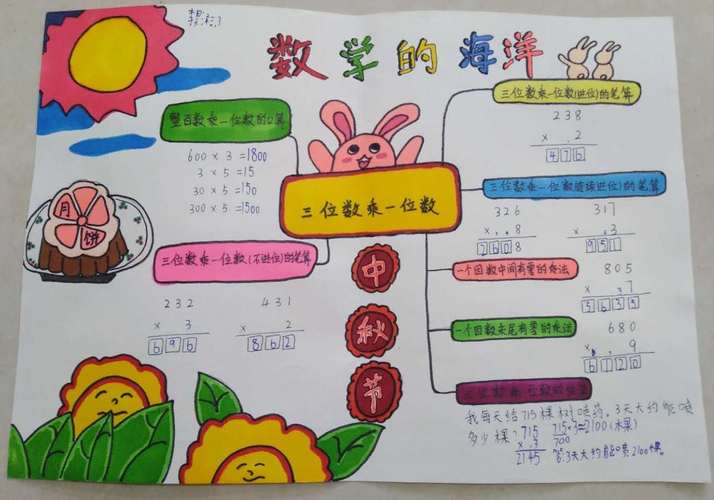 数学的海洋
整百数乘一位数的口算
600 × 3 =1800
3 × 5 =15
30 × 5 =150
300 × 5 =1500
月
饼
三位数乘一位数(不进位)的笔算
232
× 3
696
431
× 2
862
三位数乘一位数
中
秋
节
三位数乘一位数(进位)的笔算
238
× 2
476
三位数乘一位数(连续进位)的笔算
326
× 8
2608
317
× 3
951
一个因数中间有零的乘法
805
× 7
5635
一个因数末尾有零的乘法
680
× 9
6120
三位数乘一位数的
我每天给715棵树喷药。3天大约能喷
多少棵? 715 715×3≈2100(棵)
× 3 700
2145 答:3天大约能喷2100棵